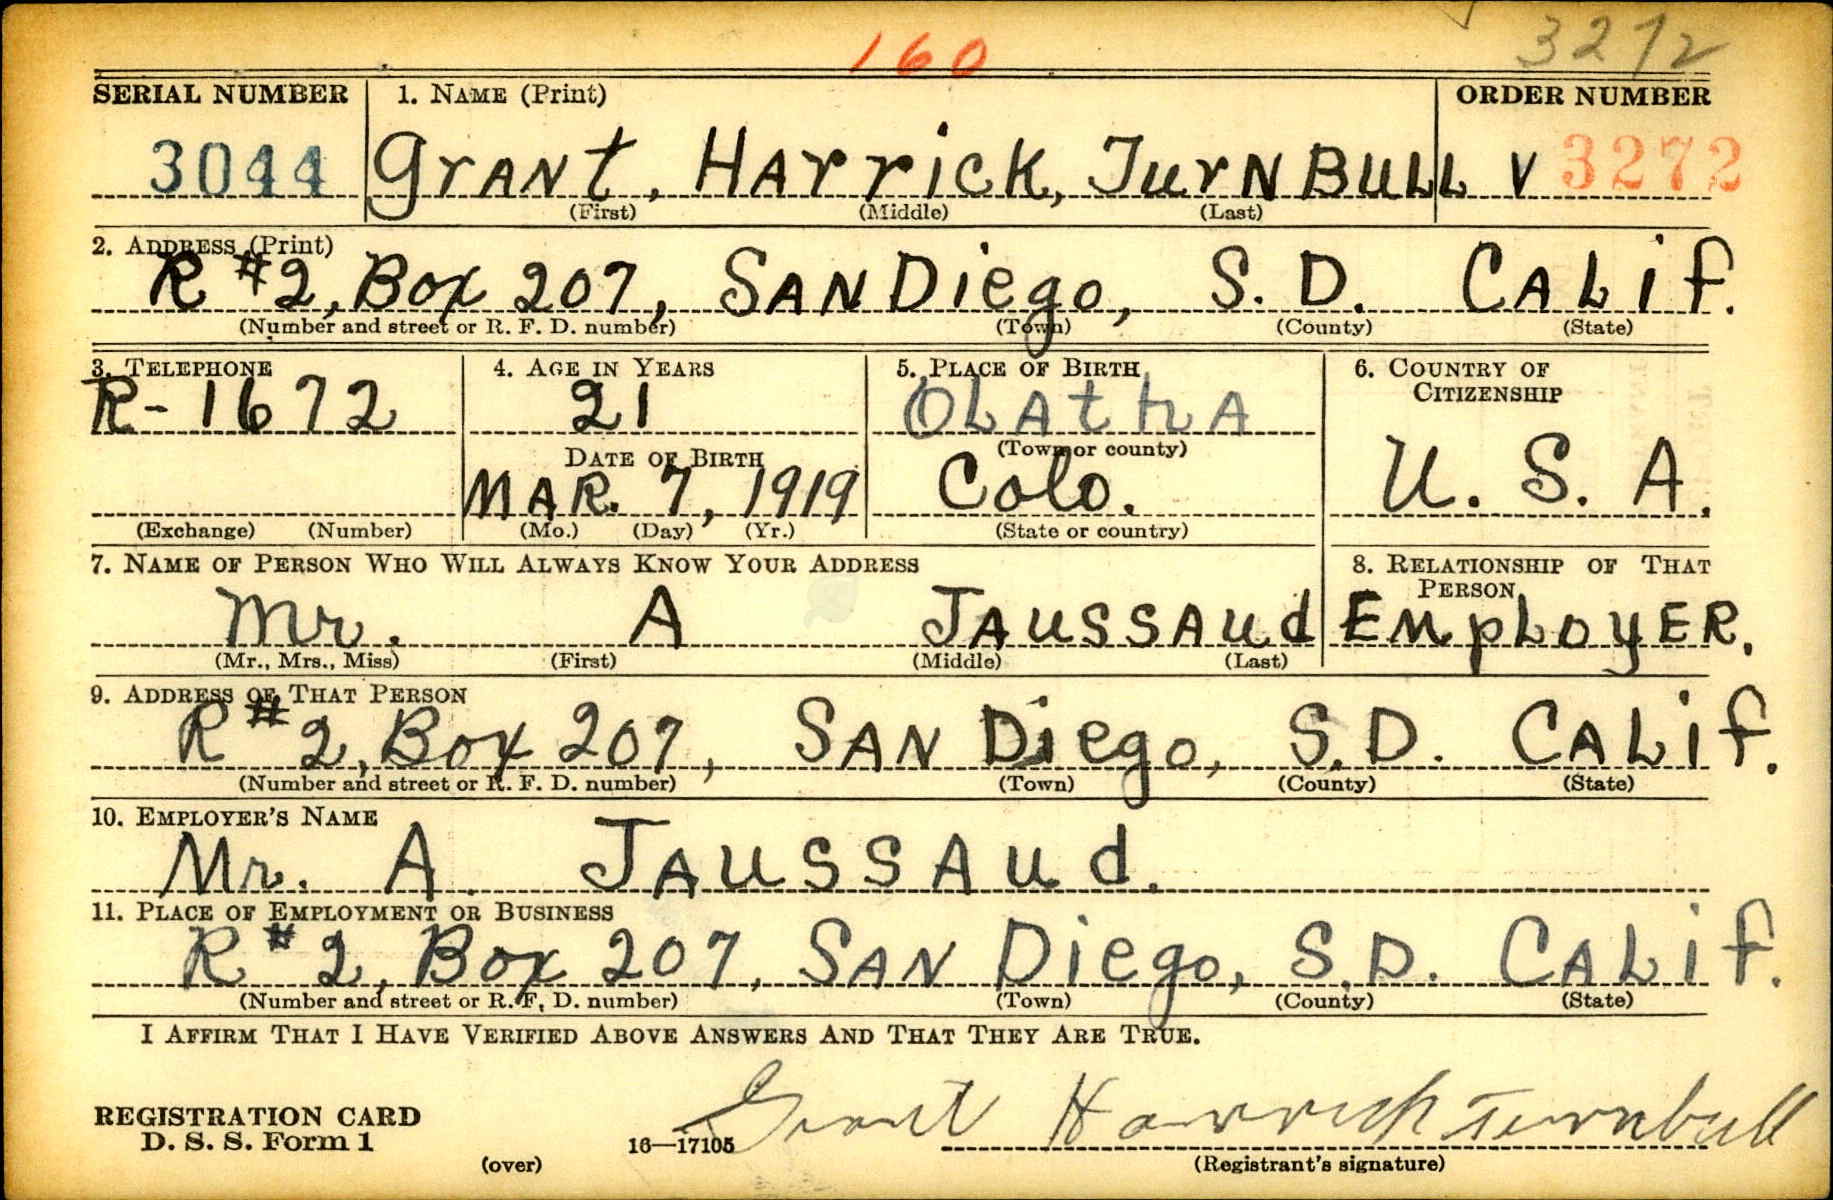 160 3272
SERIAL NUMBER 1. NAME (Print) ORDER NUMBER
3044 Grant, Harrick, Turnbull V 3272
(First) (Middle) (Last)
2. ADDRESS (Print)
R #2, Box 207, San Diego, S. D. Calif.
(Number and street or R. F. D. number) (Town) (County) (State)
3. TELEPHONE 4. AGE IN YEARS 5. PLACE OF BIRTH 6. COUNTRY OF
CITIZENSHIP
R-1672 21 Olatha
DATE OF BIRTH (Town or county)
Mar. 7, 1919 Colo. U. S. A.
(Exchange) (Number) (Mo.) (Day) (Yr.) (State or country)
7. NAME OF PERSON WHO WILL ALWAYS KNOW YOUR ADDRESS 8. RELATIONSHIP OF THAT
PERSON
Mr. A Jaussaud Employer.
(Mr., Mrs., Miss) (First) (Middle) (Last)
9. ADDRESS OF THAT PERSON
R #2, Box 207, San Diego, S. D. Calif.
(Number and street or R. F. D. number) (Town) (County) (State)
10. EMPLOYER'S NAME
Mr. A. Jaussaud.
11. PLACE OF EMPLOYMENT OR BUSINESS
R #2, Box 207, San Diego, S. D. Calif.
(Number and street or R. F. D. number) (Town) (County) (State)
I AFFIRM THAT I HAVE VERIFIED ABOVE ANSWERS AND THAT THEY ARE TRUE.
Grant Harrick Turnbull
REGISTRATION CARD
D. S. S. Form 1 16—17105
(over) (Registrant's signature)